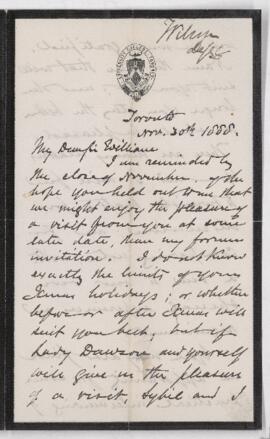 Wilson
Toronto
Nov. 30th 1888.
My Dear Sir William
I am reminded by
the close of November, of the
hope you held out to me that
we might enjoy the pleasure of
a visit from you at some
later date, than my former
invitation. I do not know
exactly the limits of your
Xmas holidays; or whether
before or after Xmas will
suit you best, but if
Lady Dawson and yourself
will give us the pleasure
of a visit, Sybil and I